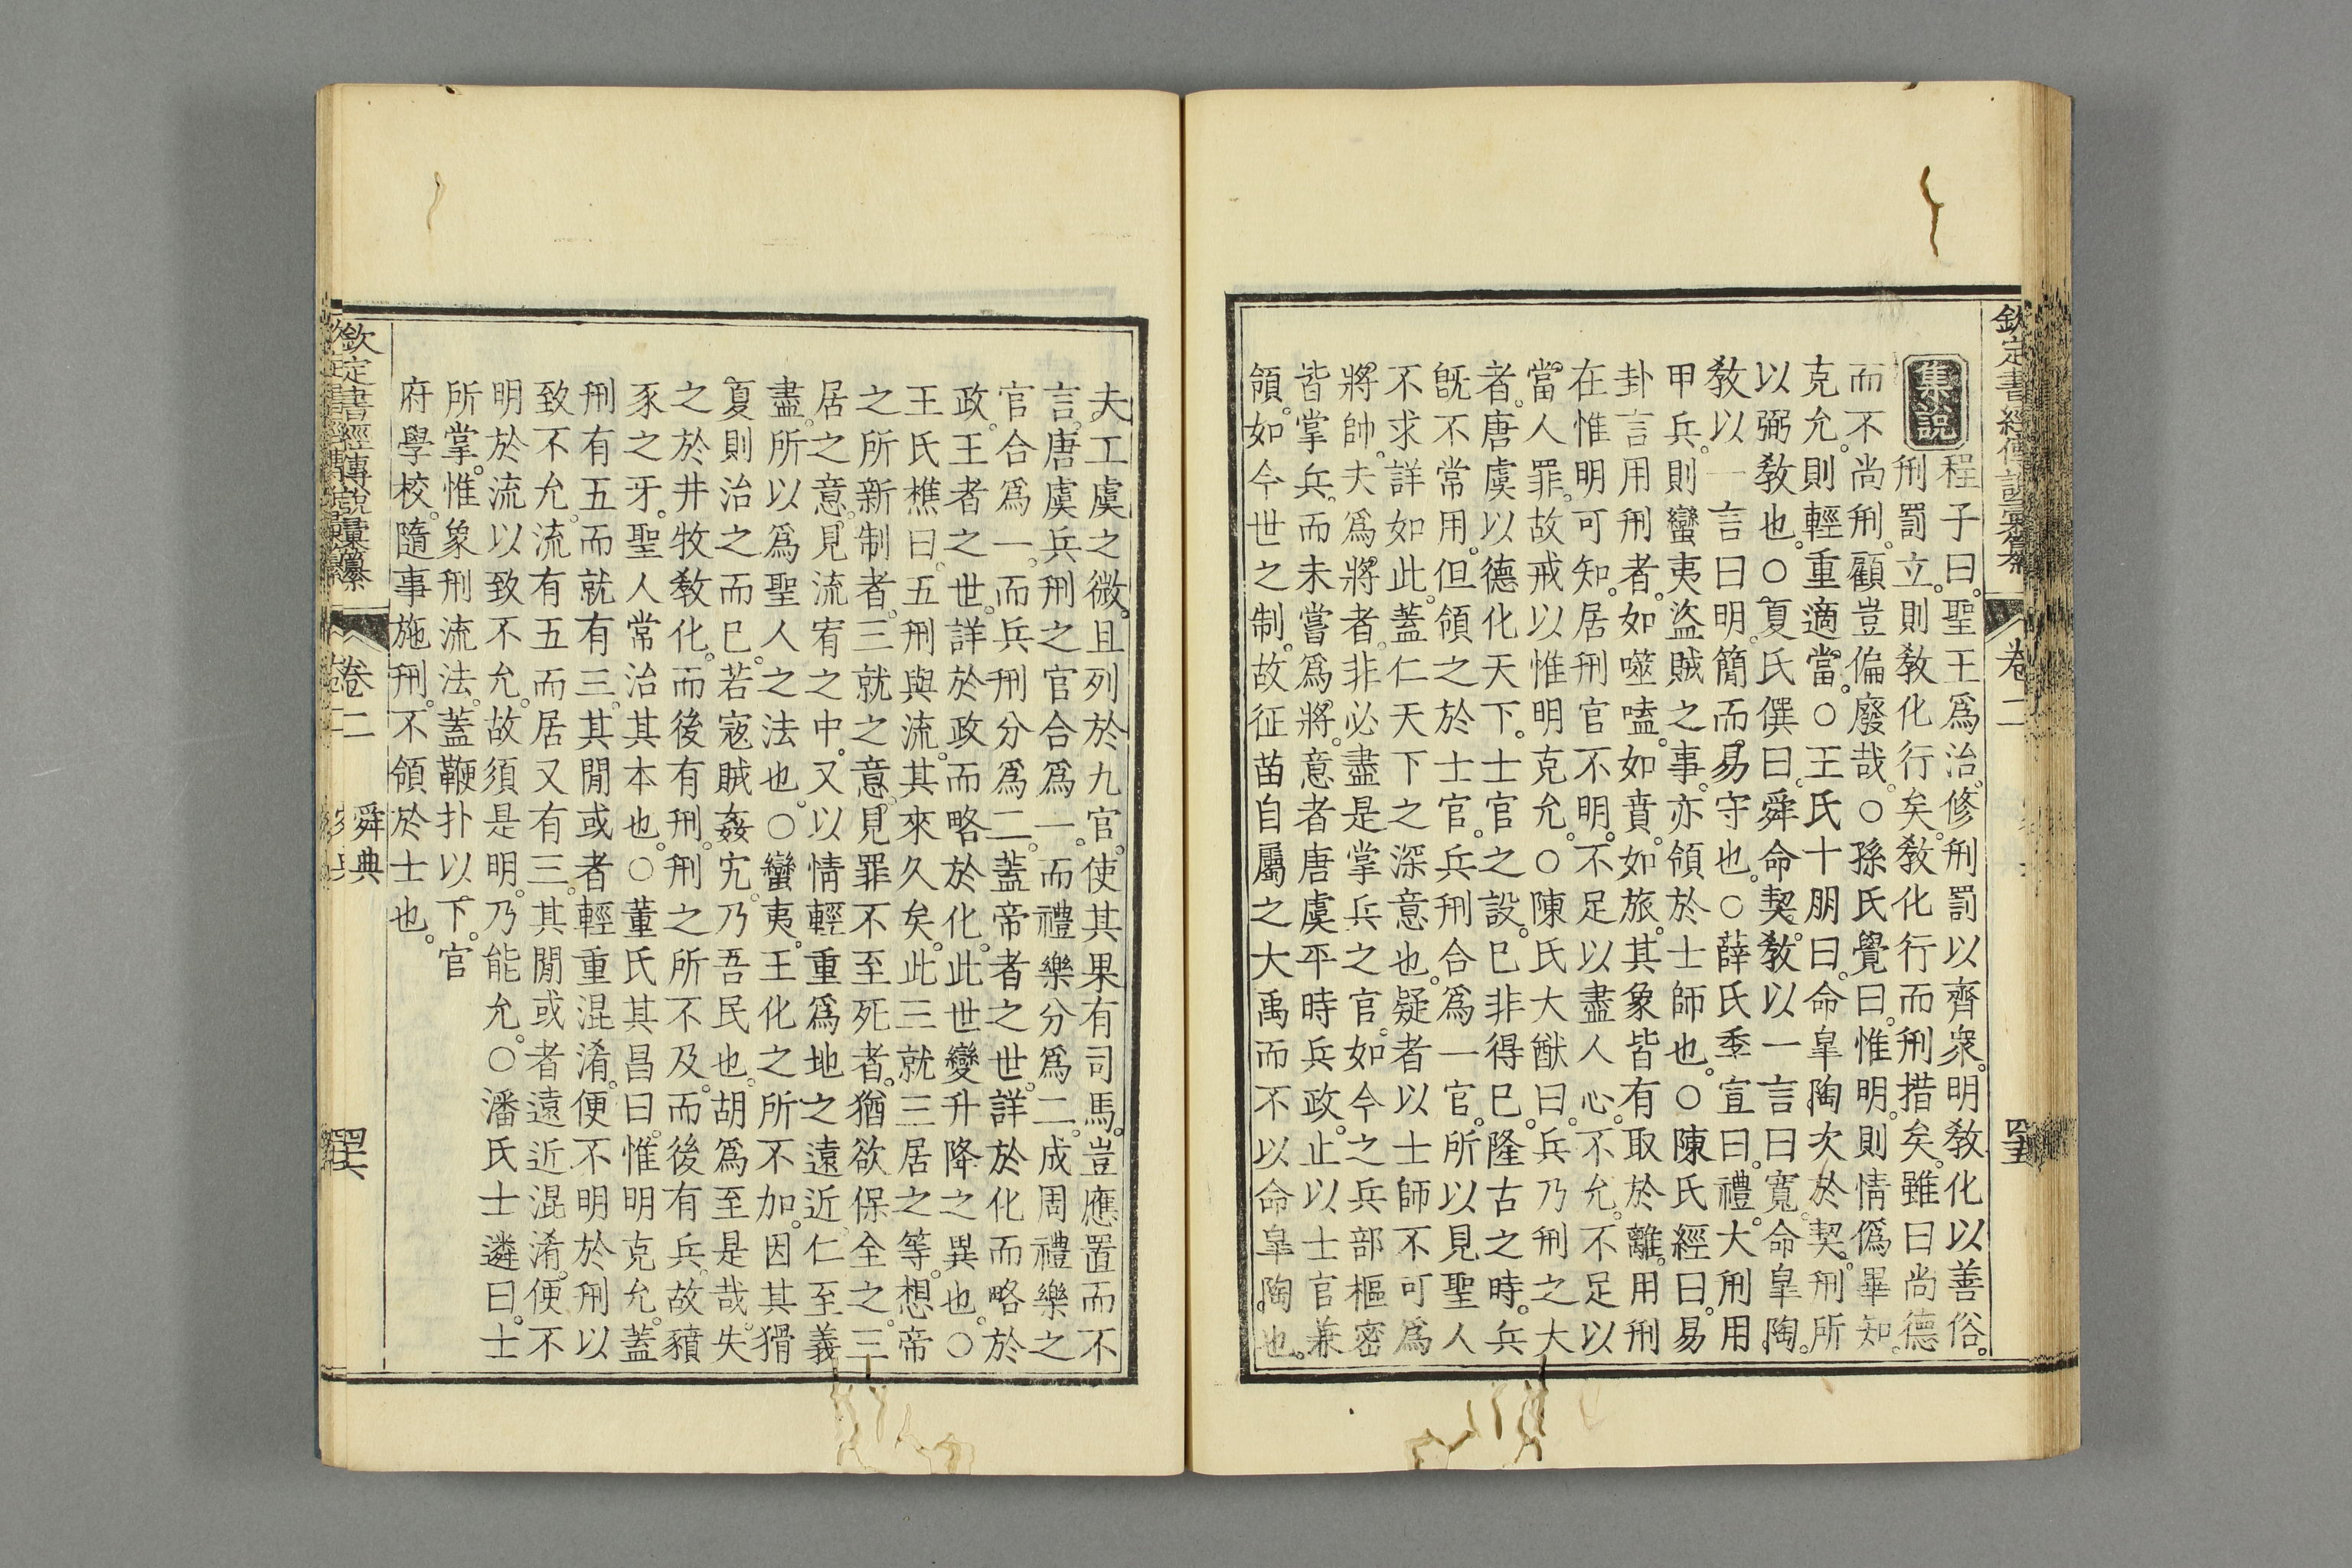 欽定書經傳說彙纂 卷二 四十五
集說
程子曰。聖王爲治。修刑罰以齊衆。明敎化以善俗。
刑罰立。則敎化行矣。敎化行而刑措矣。雖曰尚德
而不尚刑。顧豈偏廢哉。○孫氏覺曰。惟明。則情僞畢知。
克允。則輕重適當。○王氏十朋曰。命皐陶次於契。刑所
以弼敎也。○夏氏僎曰。舜命契。敎以一言曰寬。命皐陶。
敎以一言曰明。簡而易守也。○薛氏季宣曰。禮。大刑用
甲兵。則蠻夷盜賊之事。亦領於士師也。○陳氏經曰。易
卦言用刑者。如噬嗑。如賁。如旅。其象皆有取於離。用刑
在惟明可知。居刑官不明。不足以盡人心。不允。不足以
當人罪。故戒以惟明克允。○陳氏大猷曰。兵乃刑之大
者。唐虞以德化天下。士官之設。已非得已。隆古之時。兵
旣不常用。但領之於士官。兵刑合爲一官。所以見聖人
不求詳如此。蓋仁天下之深意也。疑者以士師不可爲
將帥。夫爲將者。非必盡是掌兵之官。如今之兵部樞密
皆掌兵。而未嘗爲將。意者唐虞平時兵政。止以士官兼
領。如今世之制。故征苗自屬之大禹而不以命皐陶也。
夫工虞之微。且列於九官。使其果有司馬。豈應置而不
言。唐虞兵刑之官合爲一。而禮樂分爲二。成周禮樂之
官合爲一。而兵刑分爲二。蓋帝者之世。詳於化而略於
政。王者之世。詳於政而略於化。此世變升降之異也。○
王氏樵曰。五刑與流。其來久矣。此三就三居之等。想帝
之所新制者。三就之意。見罪不至死者。猶欲保全之。三
居之意。見流宥之中。又以情輕重爲地之遠近。仁至義
盡。所以爲聖人之法也。○蠻夷。王化之所不加。因其猾
夏則治之而已。若寇賊姦宄。乃吾民也。胡爲至是哉。失
之於井牧敎化。而後有刑。刑之所不及。而後有兵。故豶
豕之牙。聖人常治其本也。○董氏其昌曰。惟明克允。蓋
刑有五。而就有三。其閒或者輕重混淆。便不明於刑以
致不允。流有五而居又有三。其閒或者遠近混淆。便不
明於流以致不允。故須是明。乃能允。○潘氏士遴曰。士
所掌。惟象刑流法。蓋鞭扑以下。官
府學校。隨事施刑。不領於士也。
欽定書經傳說彙纂 卷二 舜典 四十六